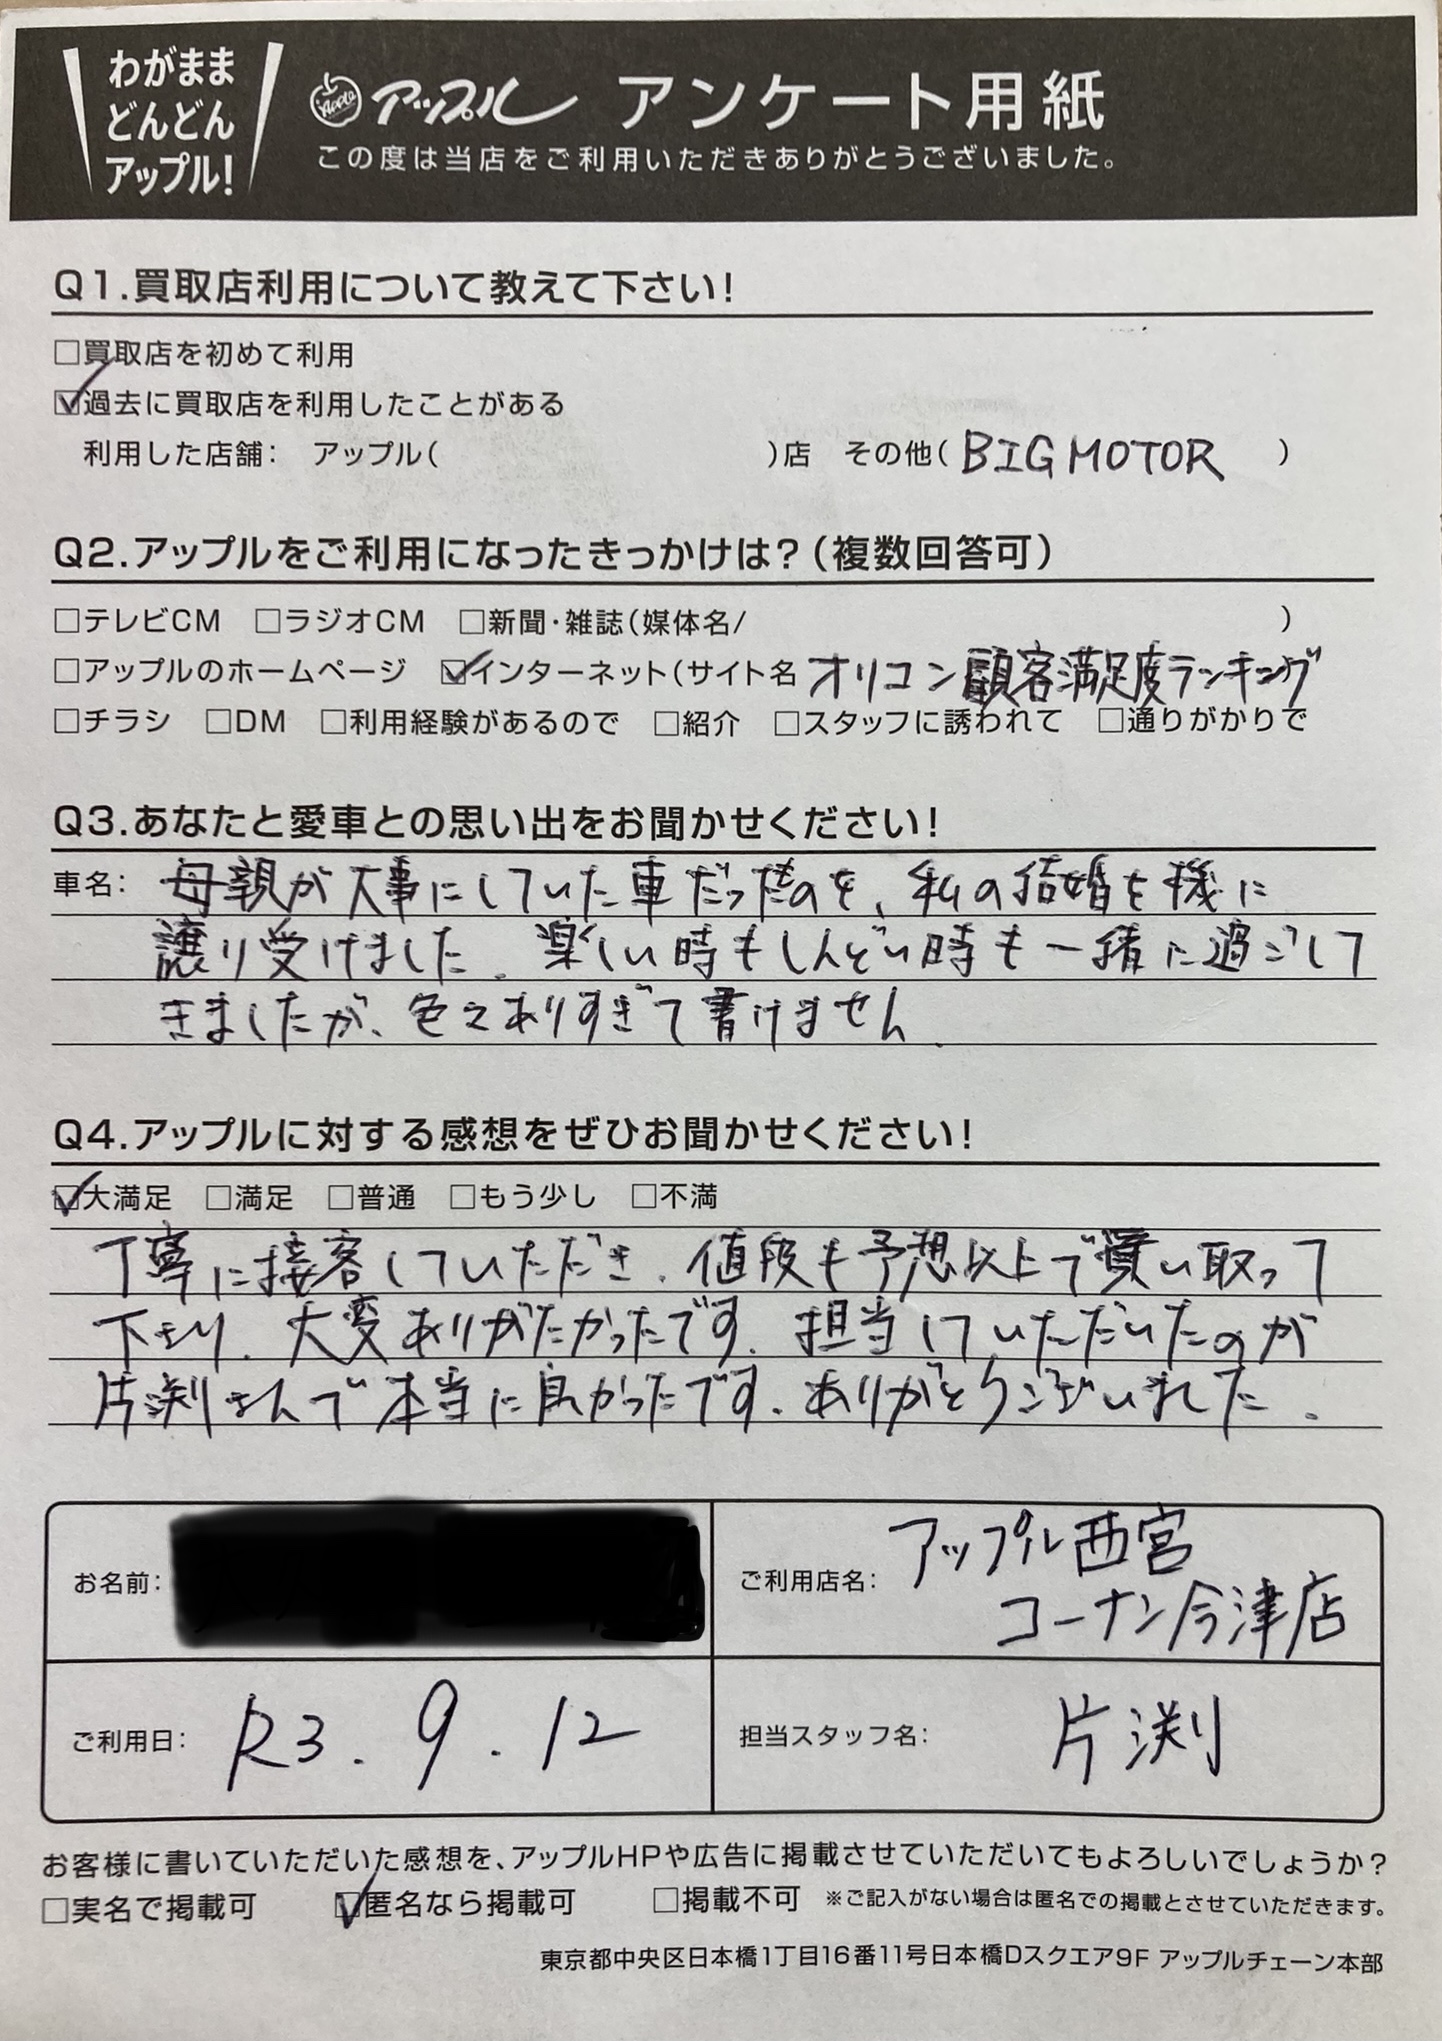 わがまま
どんどん
アップル!
Apple アップル アンケート用紙
この度は当店をご利用いただきありがとうございました。
Q1.買取店利用について教えて下さい!
□買取店を初めて利用
☑過去に買取店を利用したことがある
利用した店舗: アップル( )店 その他( BIG MOTOR )
Q2.アップルをご利用になったきっかけは?(複数回答可)
□テレビCM □ラジオCM □新聞・雑誌(媒体名/ )
□アップルのホームページ ☑インターネット(サイト名 オリコン顧客満足度ランキング
□チラシ □DM □利用経験があるので □紹介 □スタッフに誘われて □通りがかりで
Q3.あなたと愛車との思い出をお聞かせください!
車名: 母親が大事にしていた車だったのを、私の結婚を機に
譲り受けました。楽しい時もしんどい時も一緒に過ごして
きましたが、色々ありすぎて書けません。
Q4.アップルに対する感想をぜひお聞かせください!
☑大満足 □満足 □普通 □もう少し □不満
丁寧に接客していただき、値段も予想以上で買い取って
下さり、大変ありがたかったです。担当していただいたのが
片渕さんで本当に良かったです。ありがとうございました。
お名前:
ご利用店名: アップル西宮
コーナン今津店
ご利用日: R3.9.12
担当スタッフ名: 片渕
お客様に書いていただいた感想を、アップルHPや広告に掲載させていただいてもよろしいでしょうか?
□実名で掲載可 ☑匿名なら掲載可 □掲載不可 ※ご記入がない場合は匿名での掲載とさせていただきます。
東京都中央区日本橋1丁目16番11号日本橋Dスクエア9F アップルチェーン本部